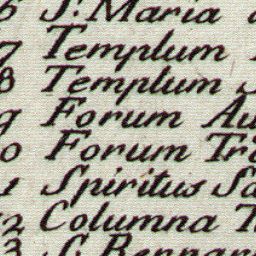 6 S. Maria
7 Templum
8 Templum S
9 Forum Au
0 Forum Tra
1 Spiritus Sa
12 Columna T
3 S. Bernar